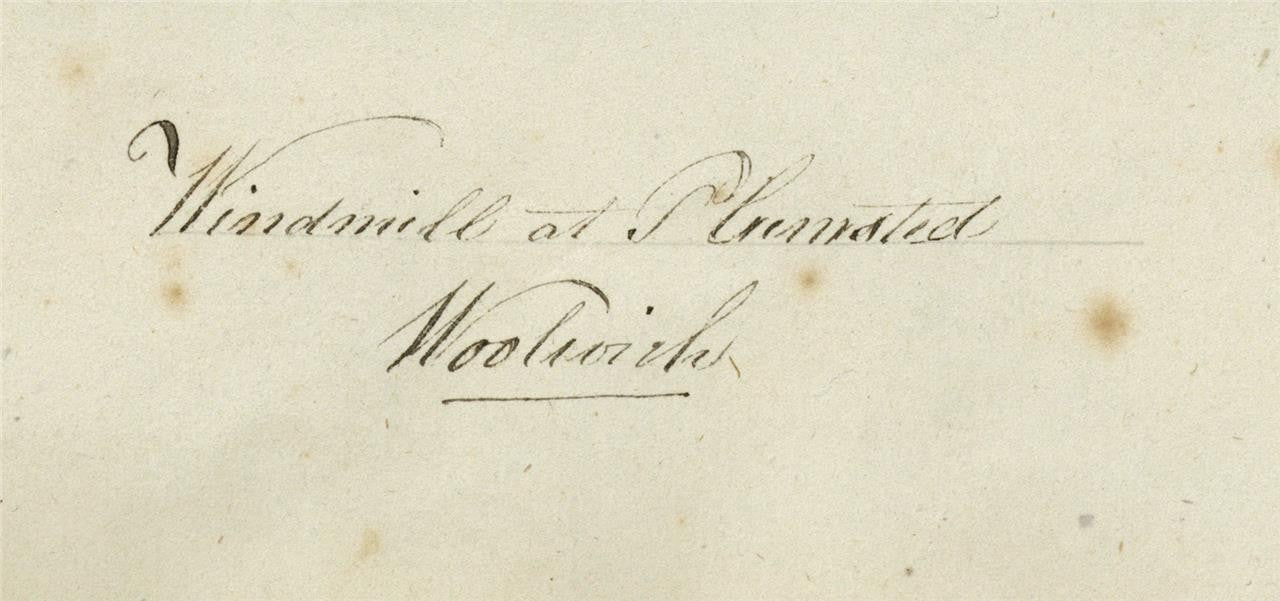 Windmill at Plumsted
Woolwich